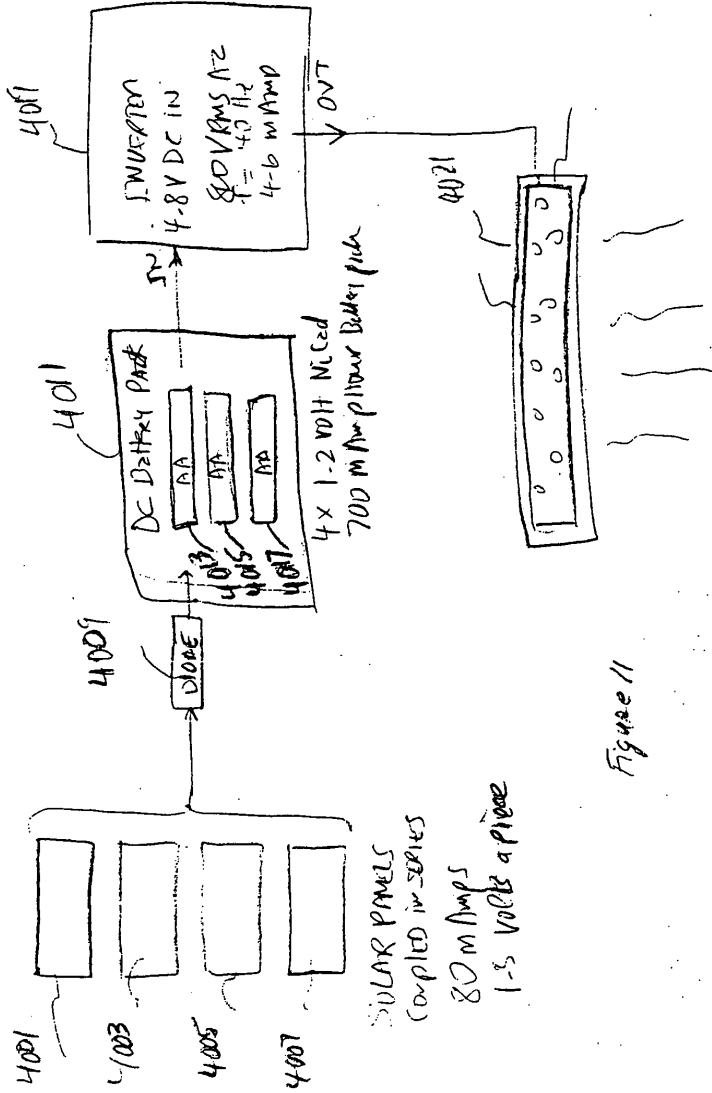 4001
4003
4005
4007
SOLAR PANELS
Coupled in series
80 mAmps
1.5 volts apiece
4009
DIODE
4011
DC Battery Pack
AA
AA
AA
4013
4015
4017
4 x 1.2 volt NiCad
700 mAmp/hour Battery pack
IN
4019
INVERTER
4.8V DC IN
800 VRMS AC
f = 40 Hz
4-6 mAmp
OUT
4021
Figure 11